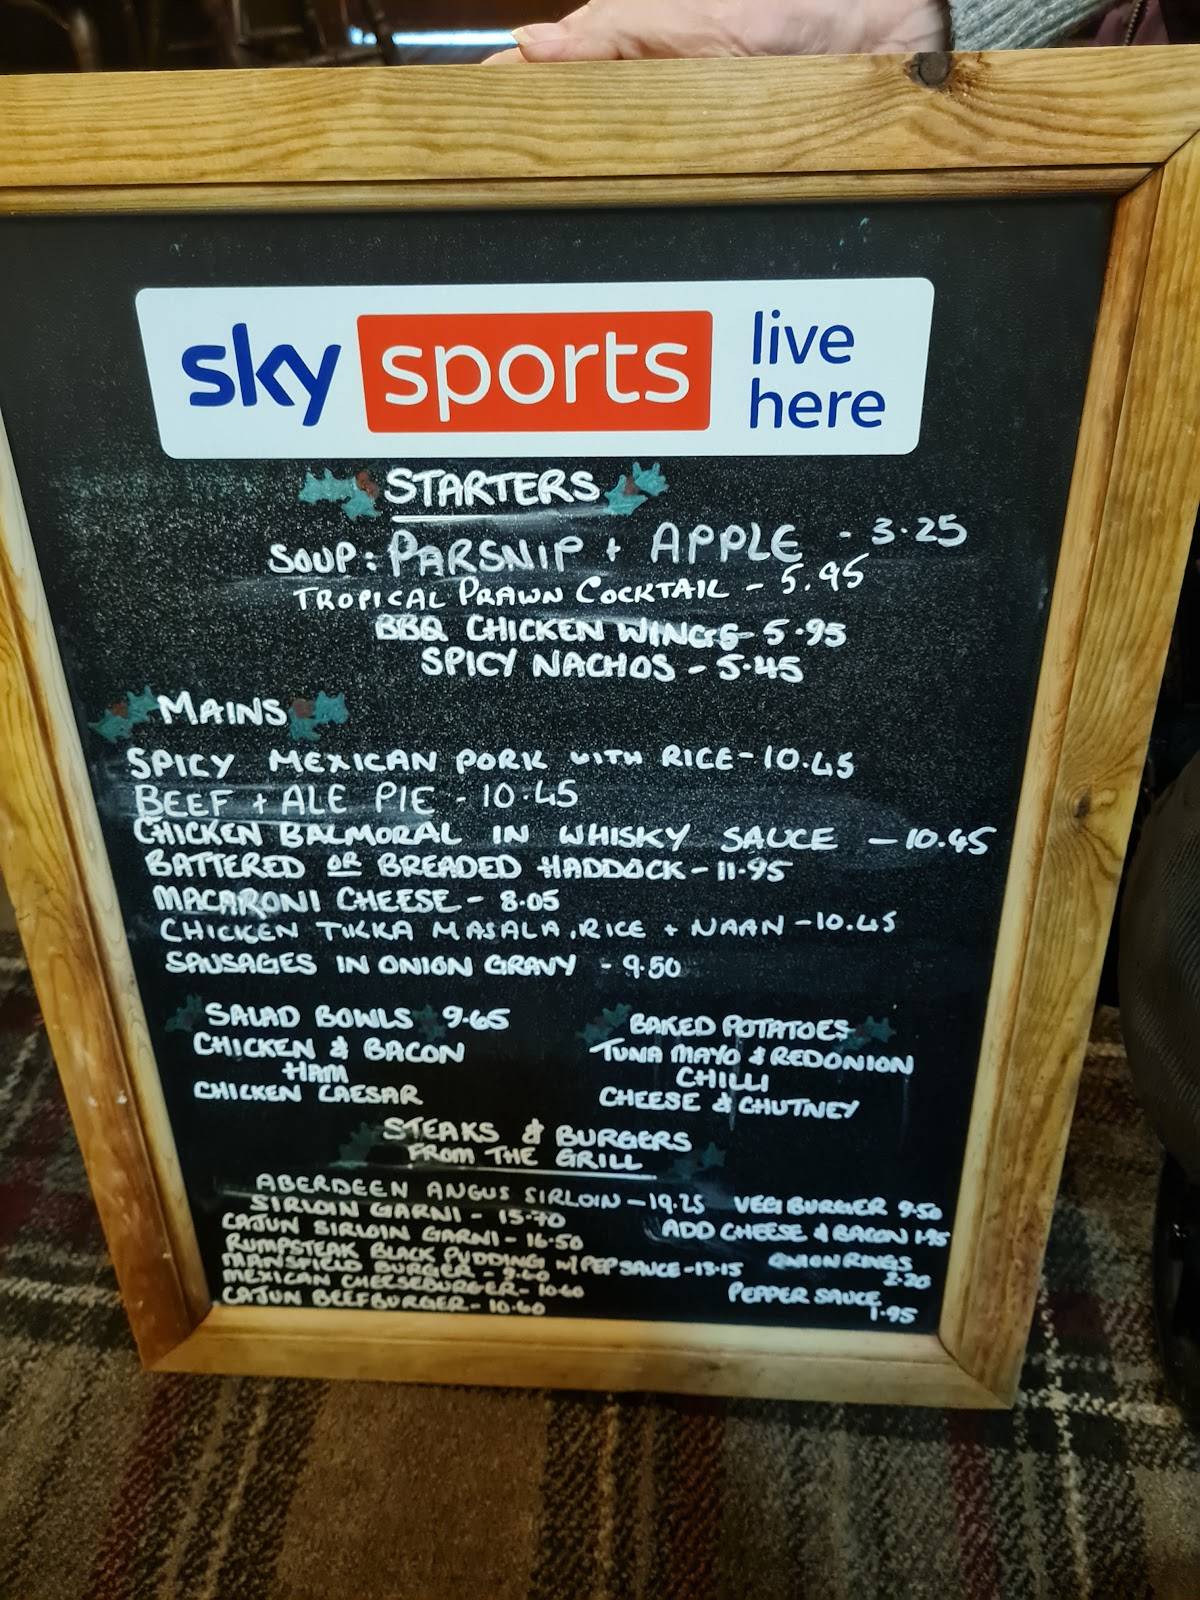 sky sports live here
STARTERS
SOUP: PARSNIP + APPLE - 3.25
TROPICAL PRAWN COCKTAIL - 5.95
BBQ CHICKEN WINGS - 5.95
SPICY NACHOS - 5.45
MAINS
SPICY MEXICAN PORK WITH RICE - 10.45
BEEF + ALE PIE - 10.45
CHICKEN BALMORAL IN WHISKY SAUCE - 10.45
BATTERED OR BREADED HADDOCK - 11.95
MACARONI CHEESE - 8.05
CHICKEN TIKKA MASALA, RICE + NAAN - 10.45
SAUSAGES IN ONION GRAVY - 9.50
SALAD BOWLS 9.65
CHICKEN & BACON
HAM
CHICKEN CAESAR
BAKED POTATOES
TUNA MAYO & RED ONION
CHILLI
CHEESE & CHUTNEY
STEAKS & BURGERS
FROM THE GRILL
ABERDEEN ANGUS SIRLOIN - 19.25
SIRLOIN GARNI - 15.70
CAJUN SIRLOIN GARNI - 16.50
RUMPSTEAK BLACK PUDDING W/ PEP SAUCE - 13.15
MANSFIELD BURGER - 9.60
MEXICAN CHEESEBURGER - 10.60
CAJUN BEEFBURGER - 10.60
VEGI BURGER 9.50
ADD CHEESE & BACON 1.95
ONION RINGS
2.20
PEPPER SAUCE
1.95